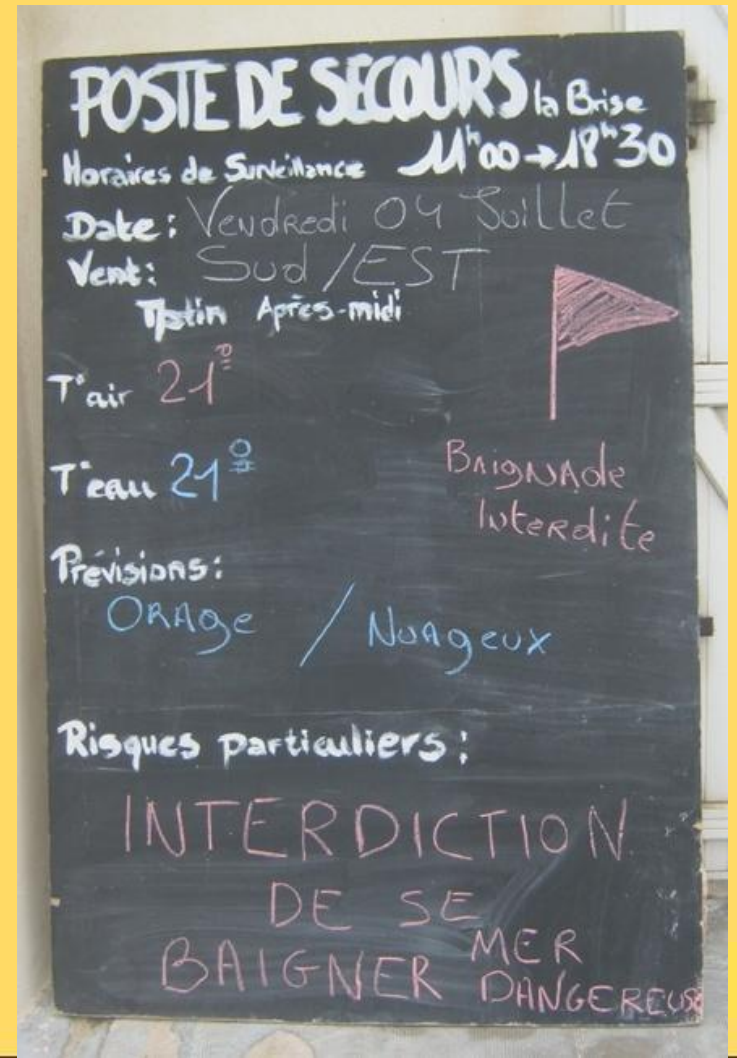 POSTE DE SECOURS la Brise
Horaires de Surveillance 11h00→18h30
Date: Vendredi 04 Juillet
Vent: Sud/EST
Matin Après-midi
T°air 21°
T°eau 21°
Baignade
Interdite
Prévisions:
Orage / Nuageux
Risques particuliers:
INTERDICTION
DE SE
BAIGNER MER
DANGEREUSE